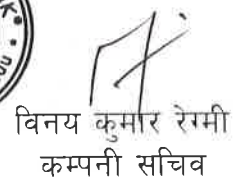 विनय कुमार रेग्मी
कम्पनी सचिव